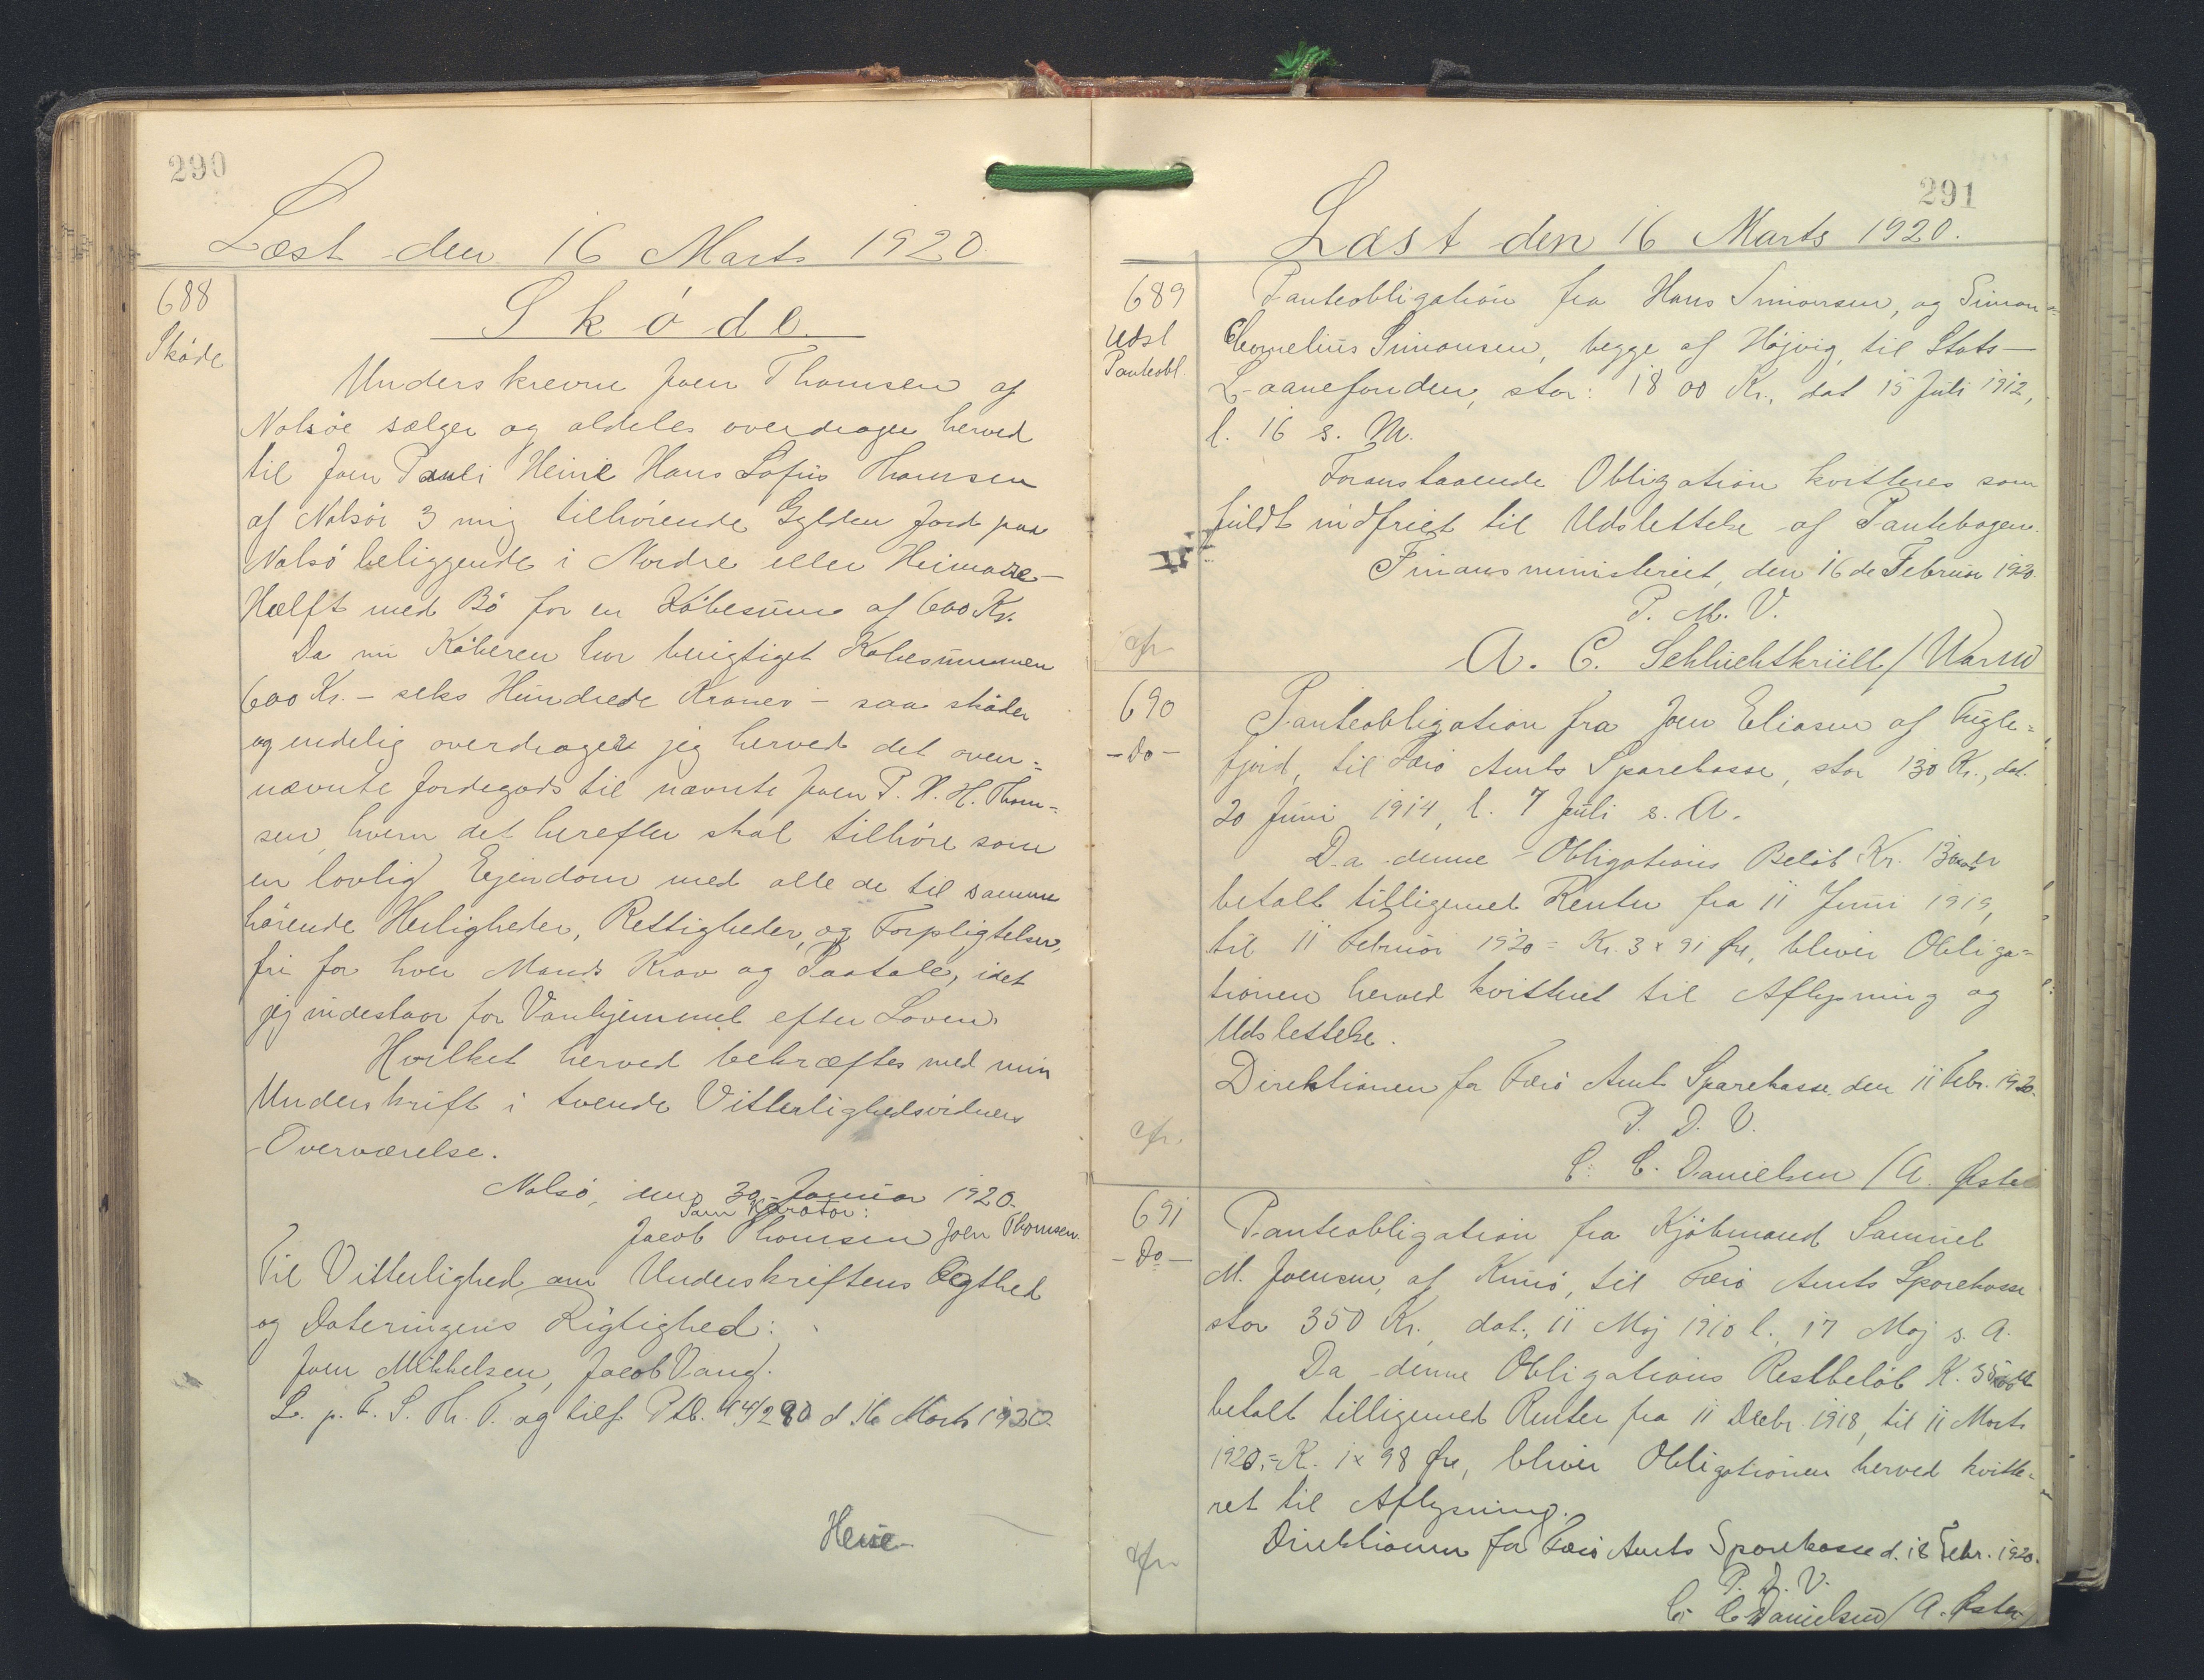 290
Læst den 16 Marts 1920.
688
Skøde
Skøde.
Underskrevne Joen Thomsen af
Nolsöe sælger og aldeles overdrager herved
til Joen Pauli Heine Hans Sofus Thomsen
af Nolsöe 3 mig tilhørende Gylden Jord paa
Nolsö beliggende i Nordre eller Heimare-
Hælft med Bö for en Købesum af 600 Kr.
Da nu Køberen har berigtiget Købesummen
600 Kr. - seks Hundrede Kroner - saa skøder
og endelig overdrager jeg herved det oven=
nævnte Jordegods til nævnte Joen P. H. H. Thom=
sen, hvem det herefter skal tilhøre som
en lovlig Ejendom med alle de til samme
hørende Herligheder, Rettigheder og Forpligtelser,
fri for hver Mands Krav og Paatale, idet
jeg indestaar for Vanhjemmel efter Loven.
Hvilket herved bekræftes med min
Underskrift i tvende Vitterlighedsvidners
Overværelse.
Nolsö, den 30 Januar 1920.
Som Kurator:
Jacob Thomsen Joen Thomsen.
Til Vitterlighed om Underskriftens Ægthed
og Dateringens Rigtighed:
Joen Mikkelsen, Jacob Vang.
L. p. F. S. Th. T. og tilf. Ptb. 44/290 d 16 Marts 1920
291
Læst den 16 Marts 1920.
689
Udsl
Panteobl.
Panteobligation fra Hans Simonsen, og Simon=
Cornelius Simonsen, begge af Højvig, til Stats-
Laanefonden, stor: 1800 Kr., dat 15 Juli 1912,
l. 16 s. M.
Foranstaaende Obligation kvitteres som
fuldt indfriet til Udslettelse af Pantebogen.
Finansministeriet, den 16de Februar 1920.
P. M. V.
A. C. Schlichtkrüll / Warm
690
-Do-
Panteobligation fra Joen Eliasen af Fugle=
fjord, til Færö Amts Sparekasse, stor 130 Kr., dat.
20 Juni 1914, l. 7 Juli s. A.
Da denne Obligations Beløb Kr. 130 er
betalt tilligemed Renter fra 11 Juni 1919,
til 11 Februar 1920 = Kr. 3 x 91 Øre, bliver Obliga=
tionen herved kvitteret til Aflysning og
Udslettelse.
Direktionen for Færö Amts Sparekasse, den 11 Febr. 1920.
P. D. V.
C. C. Danielsen / A. Øster
691
-Do-
Panteobligation fra Kjøbmand Samuel
M. Joensen, af Kunö, til Færö Amts Sparekasse
stor 350 Kr. dat. 11 Maj 1910 l. 17 Maj s. A.
Da denne Obligations Restbeløb K. er
betalt tilligemed Renter fra 11 Decbr. 1918, til 11 Marts
1920, = K. 1 x 98 Øre, bliver Obligationen herved kvitte=
ret til Aflysning.
Direktionen for Færö Amts Sparekasse d. 18 Febr. 1920.
P. D. V.
C. C. Danielsen / A. Øster